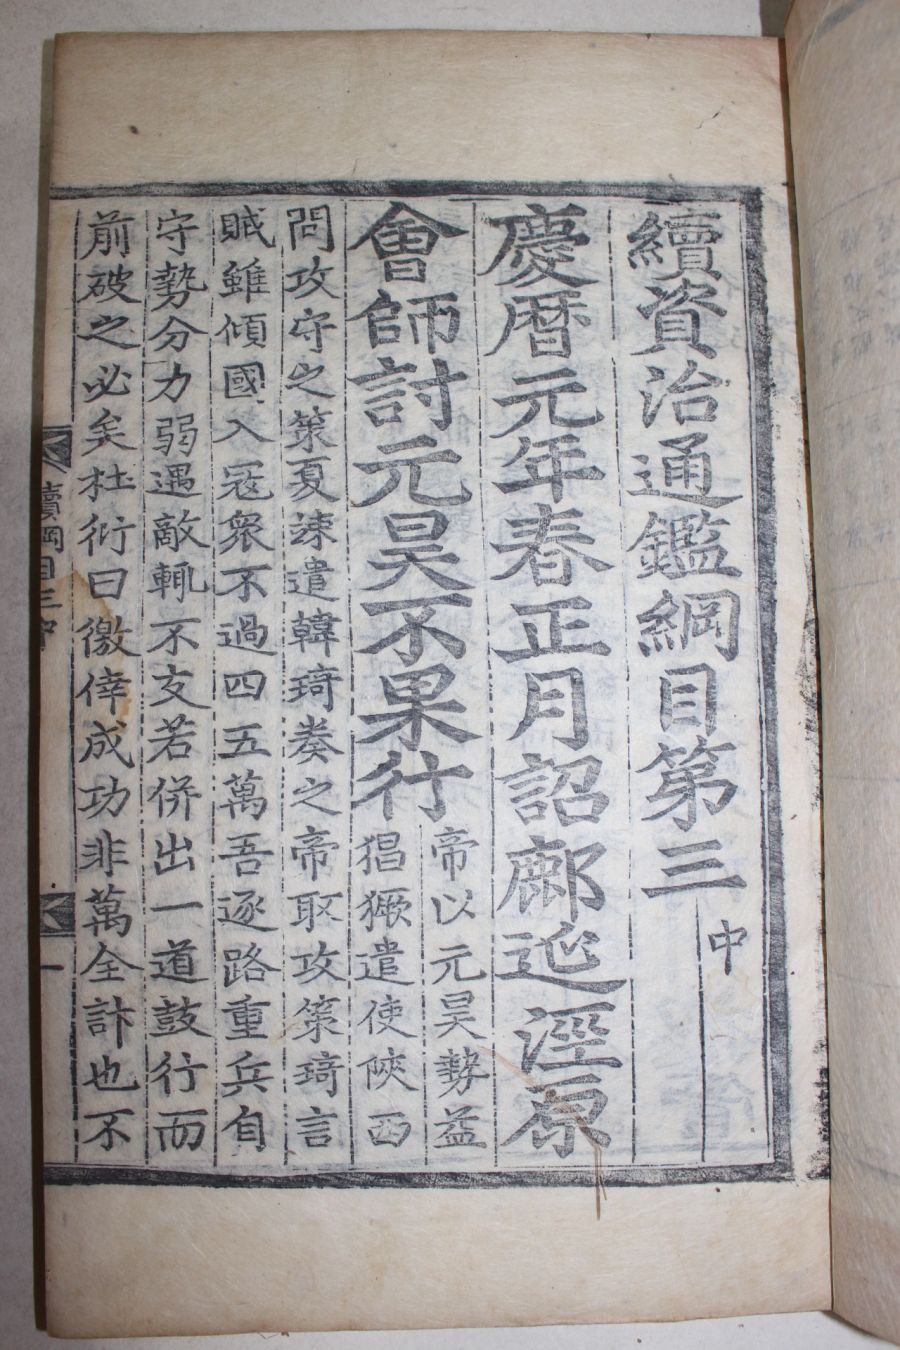 續資治通鑑綱目第三中
慶曆元年春正月詔鄜延涇原
會師討元昊不果行
帝以元昊勢益
猖獗遣使陜西
問攻守之策夏竦遣韓琦奏之帝取攻策琦言
賊雖傾國入寇衆不過四五萬吾逐路重兵自
守勢分力弱遇敵輒不支若併出一道鼓行而
前破之必矣杜衍曰徼倖成功非萬全計也不
續綱目三中
一